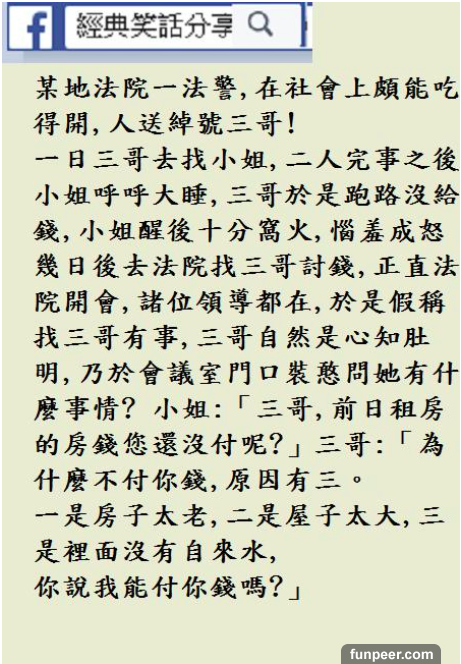 經典笑話分享
某地法院一法警,在社會上頗能吃
得開,人送綽號三哥!
一日三哥去找小姐,二人完事之後
小姐呼呼大睡,三哥於是跑路沒給
錢,小姐醒後十分窩火,惱羞成怒
幾日後去法院找三哥討錢,正直法
院開會,諸位領導都在,於是假稱
找三哥有事,三哥自然是心知肚
明,乃於會議室門口裝憨問她有什
麼事情? 小姐:「三哥,前日租房
的房錢您還沒付呢?」三哥:「為
什麼不付你錢,原因有三。
一是房子太老,二是屋子太大,三
是裡面沒有自來水,
你說我能付你錢嗎?」
funpeer.com